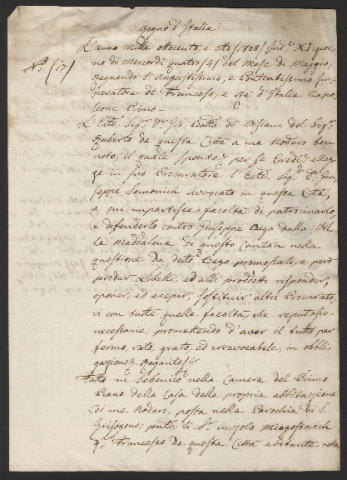 Regno d'Italia
N.° (17)
L'anno mille ottocento, e otto /1808/ Ind.e XI. gior
no di Mercordì quatro /4/ del Mese di Maggio,
Regnando l'Augustissimo, e Potentissimo Im
peratore de' Francesi, e Rè d'Italia Napo
leone Primo.
L'Ecc.te Sig.r D.r Gio. Batta de Difnico del Sig.r
Uberto da questa Città a me Nodaro ben
noto, il quale spont.e per se Eredi eleg
ge in suo Procuratore l'Ecc.te Sig.r D.r Giu
seppe Semonich Avvocato in questa Città,
a cui impartisce facoltà di patrocinarlo,
e difenderlo contro Giuseppe Bega dalla Vil
la Maddalena di questo Cantone nella
questione da detto Bega promossale, e però
produr Libelli, ed alli prodotti risponder,
opponer, ed eccepir, sostituir altri Procurato
ri con tutte quelle facoltà che reputasse
necessarie, promettendo d'aver il tutto per
fermo, rato, grato, ed irrevocabile, in obbli
gazione. Rogantes
Fatto in Sebenico nella Camera del Primo
Piano della Casa della propria abbitazione
di me Nodaro, posta nella Parochia di S.
Grisogono; presenti il S.r Angolo
q.m Francesco da questa Città abitante nella